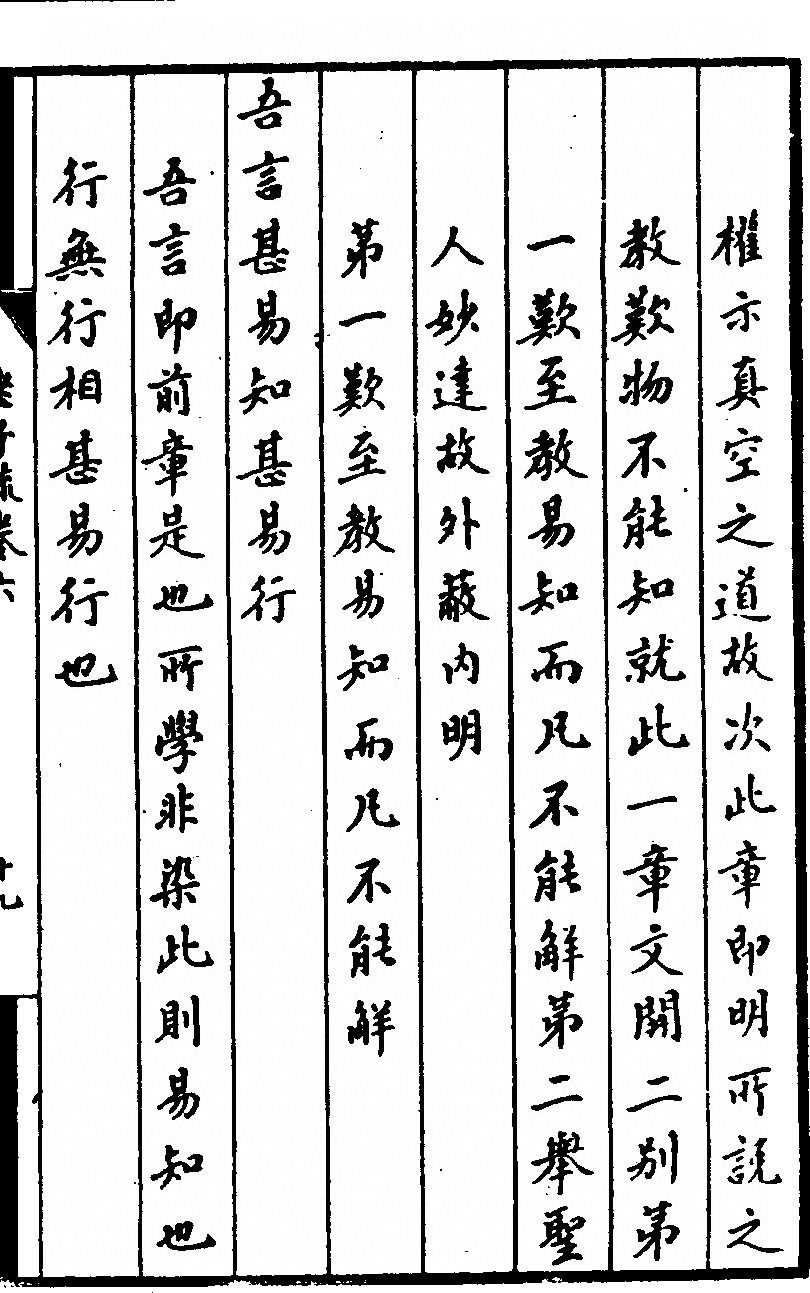 權示真空之道故次此章即明所説之
教歎物不能知就此一章文開二别苐
一歎至教易知而凡不能解苐二舉聖
人妙達故外蔽内明
苐一歎至教易知而凡不能解
吾言甚易知甚易行
吾言即前章是也所學非染此則易知也
行無行相甚易行也
老子疏卷六
十九